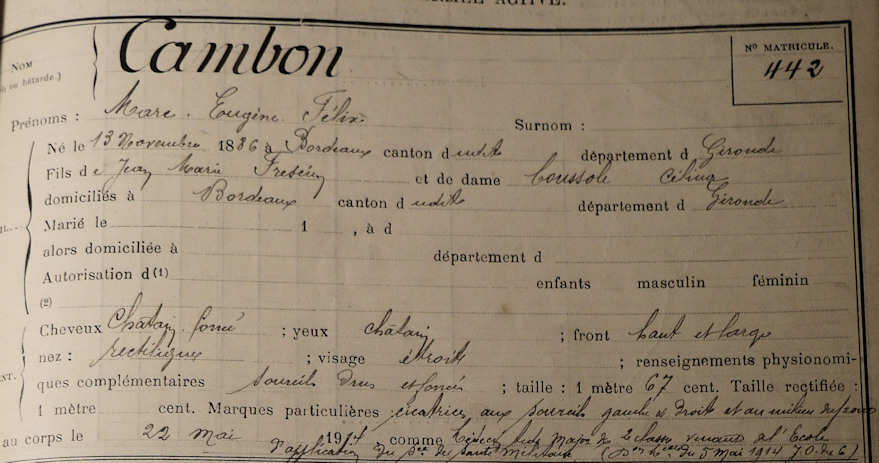 NOM
Cambon
en bâtarde.)
No MATRICULE.
442
Prénoms : Marc. Eugène. Félix
Surnom :
Né le 13 Novembre 1886 à Bordeaux canton d udit département d Gironde
Fils de Jean Marie et de dame Coussole Célina
domiciliés à Bordeaux canton d udit département d Gironde
Marié le 1 , à d
alors domiciliée à département d
Autorisation d (1) enfants masculin féminin
(2)
Cheveux Châtain foncé ; yeux châtain ; front haut et large
nez : rectiligne ; visage étroit ; renseignements physionomi-
ques complémentaires sourcils drus et foncés ; taille : 1 mètre 67 cent. Taille rectifiée :
1 mètre cent. Marques particulières : cicatrices aux sourcils gauche & droit et au milieu du
au corps le 22 mai 1914 comme Médecin aide major de 2e classe venant de l'Ecole
d'application du Sce de Santé Militaire ( du 5 Mai 1914 J.O. du 6)